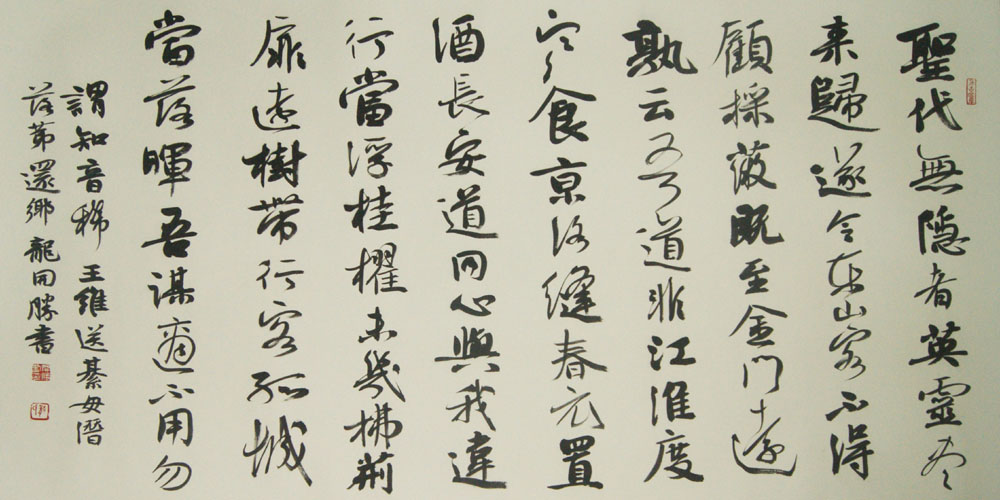 聖代無隱者英靈盡
来歸遂令東山客不得
顧採薇既至金門遠
孰云吾道非江淮度
寒食京洛縫春衣置
酒長安道同心與我違
行當浮桂櫂未幾拂荆
扉遠樹帶行客孤城
當落暉吾謀適不用勿
謂知音稀 王維送綦毋潛
落第還鄉 龍開勝書